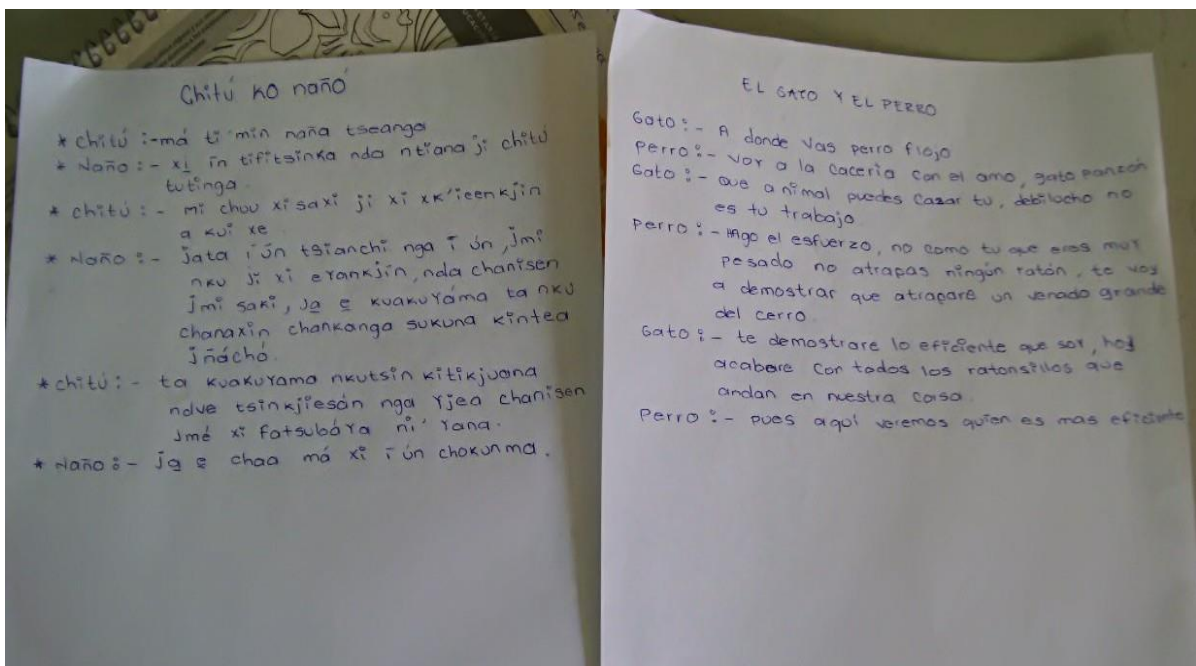 Chitú ko nañó
* chitú :- má ti min naña tseanga
* Naño :- xi in tifitsinka nda ntiana ji chitú
tutinga.
* chitú :- mi chou xi saxi ji xi xk'ieenkjin
a kui xe
* Naño :- jata i ún tsianchi nga i ún, jmi
nku ji xi erankjin, nda chanisen
jmi saki, ja e kuakuyáma ta nku
chanaxin chankanga sukuna kintea
jñáchó.
* chitú :- ta kuakuyama nkutsin kitikjuana
ndve tsinkjiesón nga yjea chanisen
jmé xi fatsubáya ni' yana.
* Naño :- ja e chaa má xi i ún chokunma.
EL GATO Y EL PERRO
Gato :- A donde vas perro flojo
perro :- voy a la caceria con el amo, gato panzón
Gato :- que animal puedes cazar tu, debilucho no
es tu trabajo
perro :- Hago el esfuerzo, no como tu que eres muy
pesado no atrapas ningún ratón, te voy
a demostrar que atraparé un venado grande
del cerro.
Gato :- te demostrare lo eficiente que soy, hoy
acabare con todos los ratonsillos que
andan en nuestra casa.
Perro :- pues aquí veremos quien es mas eficiente